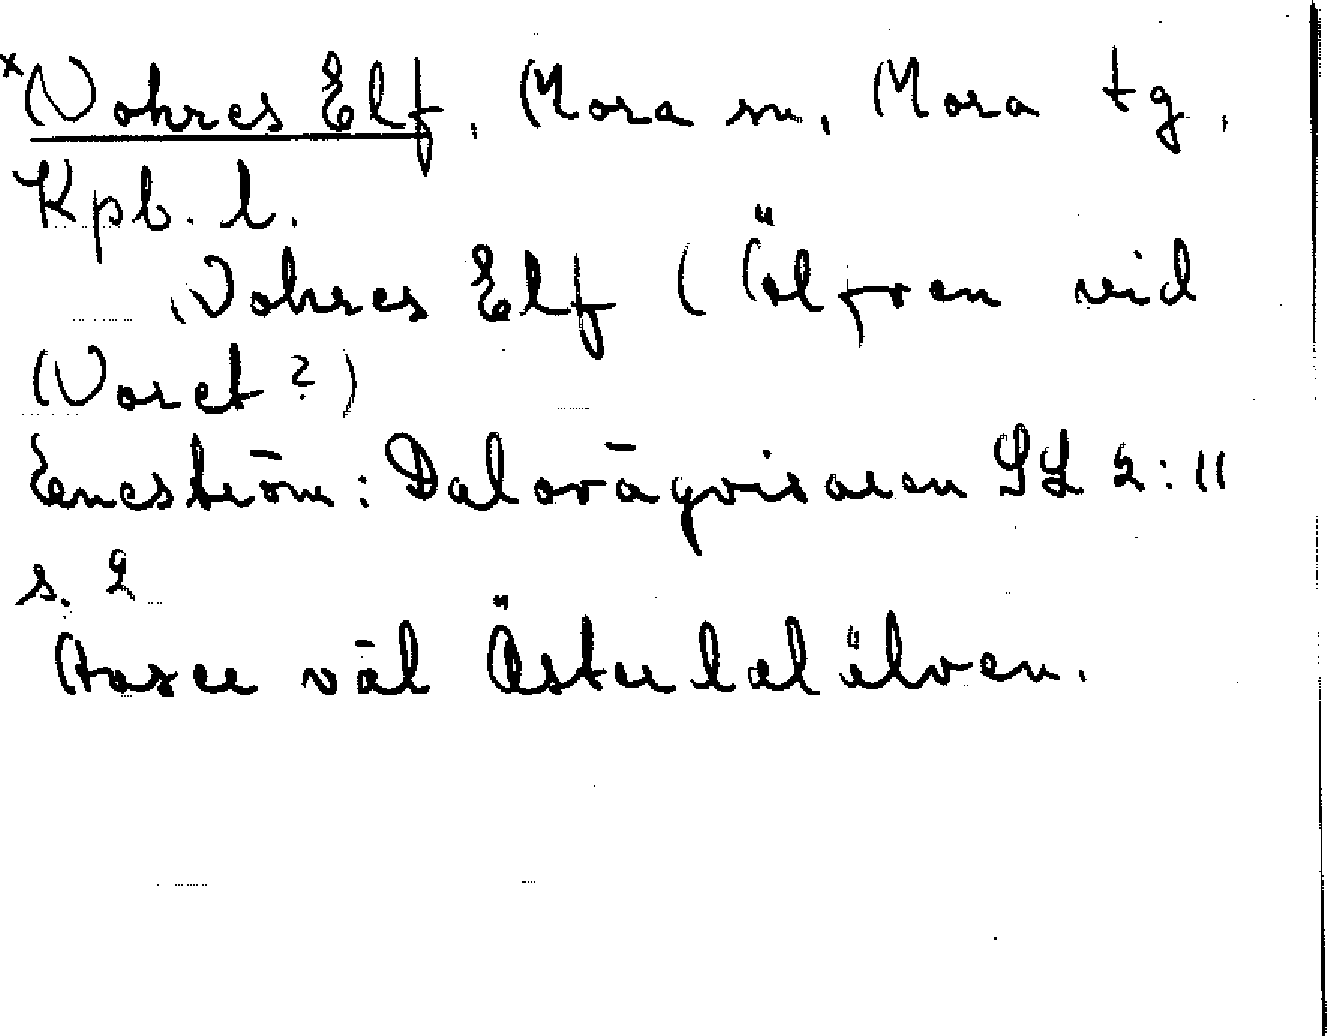 *Vohres Elf, Mora sn, Mora tg,
Kpb. l.
Vohres Elf (Älfven vid
Voret?)
Eneström: Dalavägvisaren SL 2:11
s. 2
Avser väl Österdalälven.